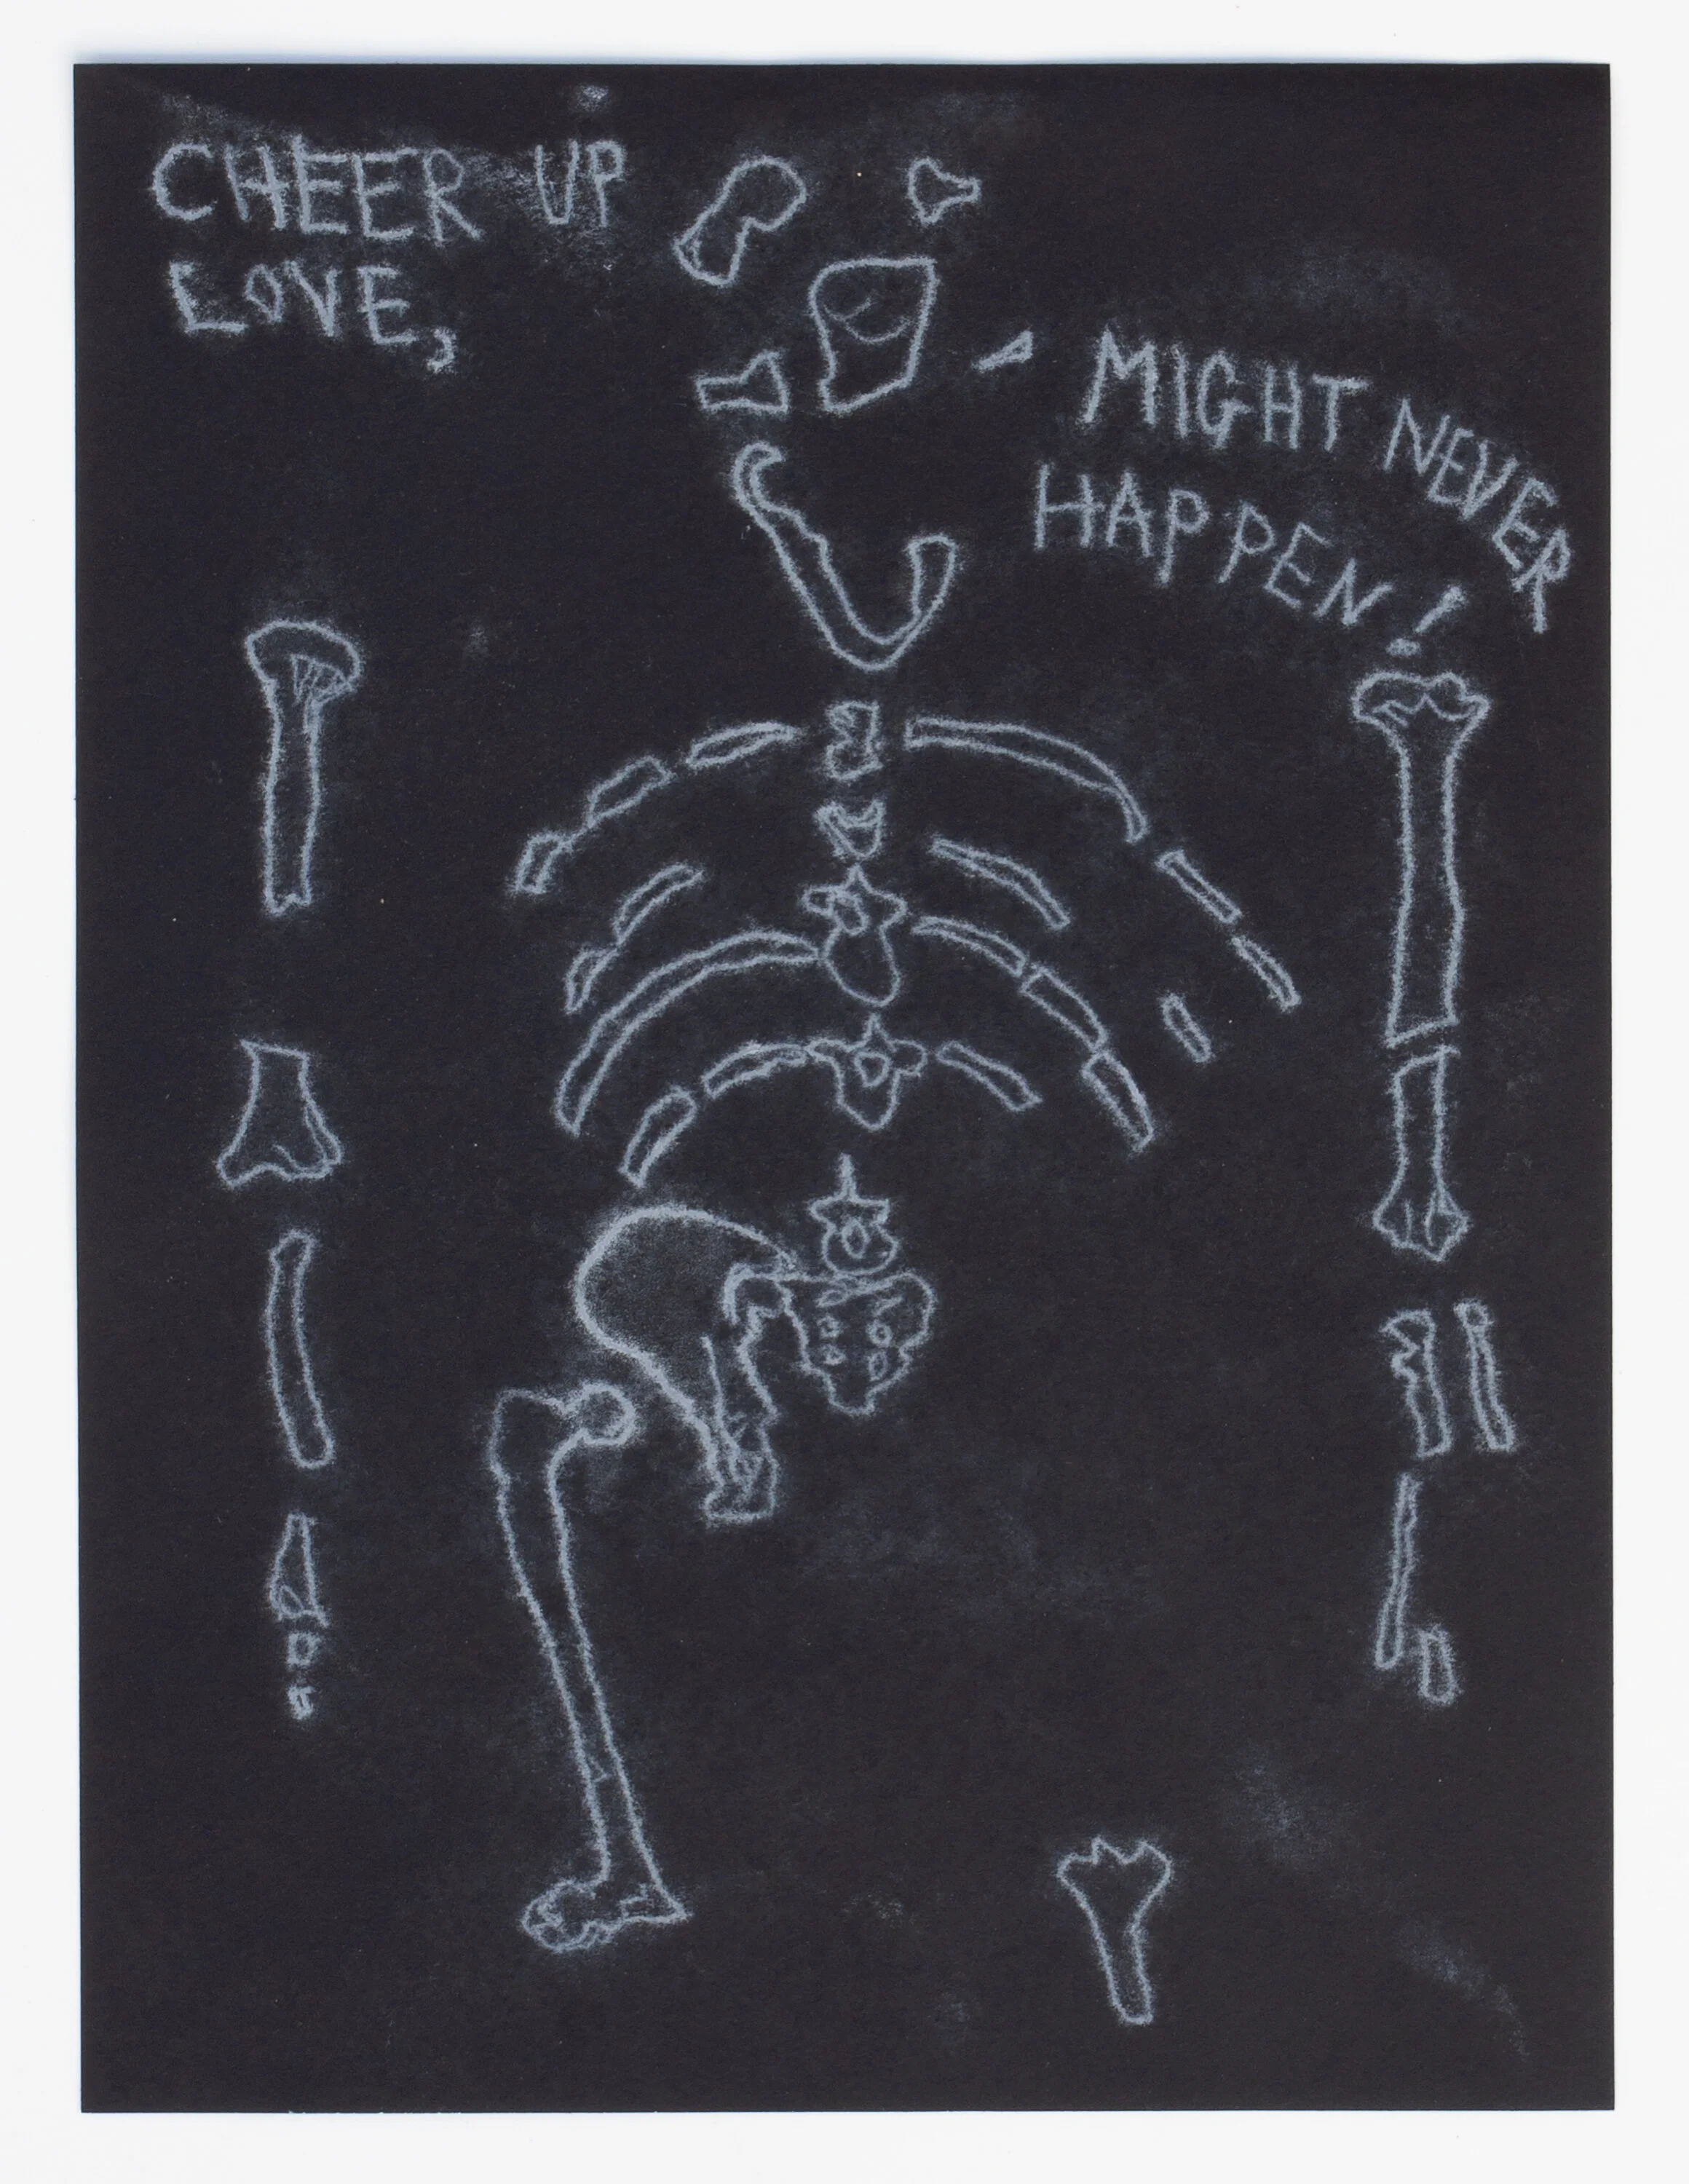 CHEER UP
LOVE,
MIGHT NEVER
HAPPEN!